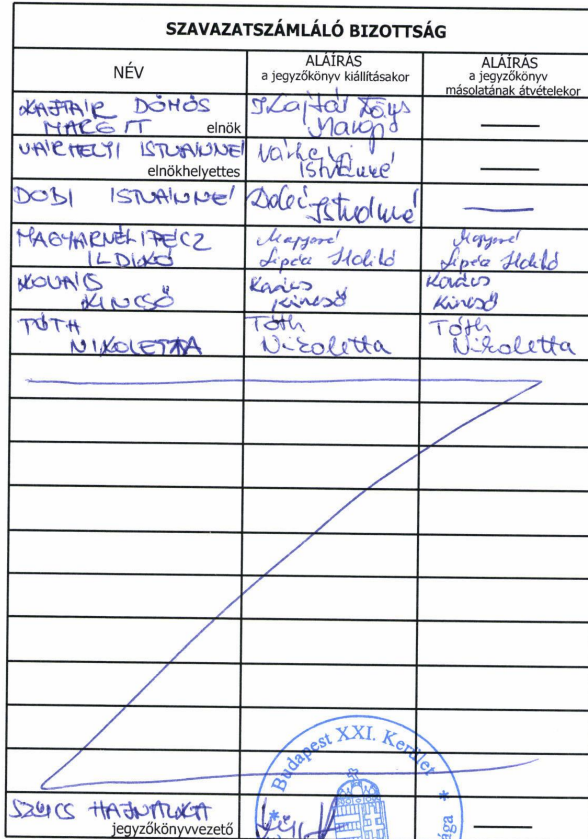 SZAVAZATSZÁMLÁLÓ BIZOTTSÁG
NÉV
ALÁÍRÁS
a jegyzőkönyv kiállításakor
ALÁÍRÁS
a jegyzőkönyv
másolatának átvételekor
DÖMÖS
MARGIT elnök
VÁRHELYI ISTVÁNNÉ
elnökhelyettes
Várhelyi
Istvánné
DOBI ISTVÁNNÉ
Dobi Istvánné
ILDIKÓ
Magyarné
Lipécz Ildikó
Magyarné
Lipécz Ildikó
KOVÁCS
KINCSŐ
Kovács
Kincső
Kovács
Kincső
TÓTH
NIKOLETTA
Tóth
Nikoletta
Tóth
Nikoletta
Budapest XXI. Kerület
SZŰCS HAJNALKA
jegyzőkönyvvezető